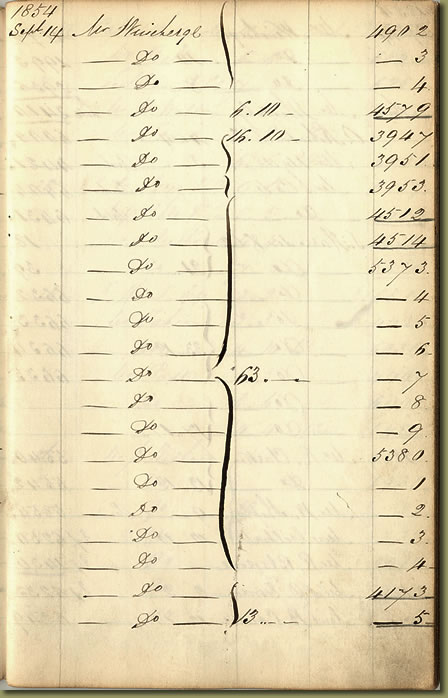 1854
Sept 14 Mr 4902
— Do — — 3
— Do — — 4
— Do — 6.10 - 4579
— Do — 16.10 - 3947
— Do — 3951
— Do — 3953.
— Do — 4512
— Do — 4514
— Do — 5373.
— Do — — 4
— Do — — 5
— Do — — 6
— Do — 63. — — 7
— Do — — 8
— Do — — 9
— Do — 5380.
— Do — — 1
— Do — — 2.
— Do — — 3.
— Do — — 4
— Do — 4173
— Do — 13. — — 5.